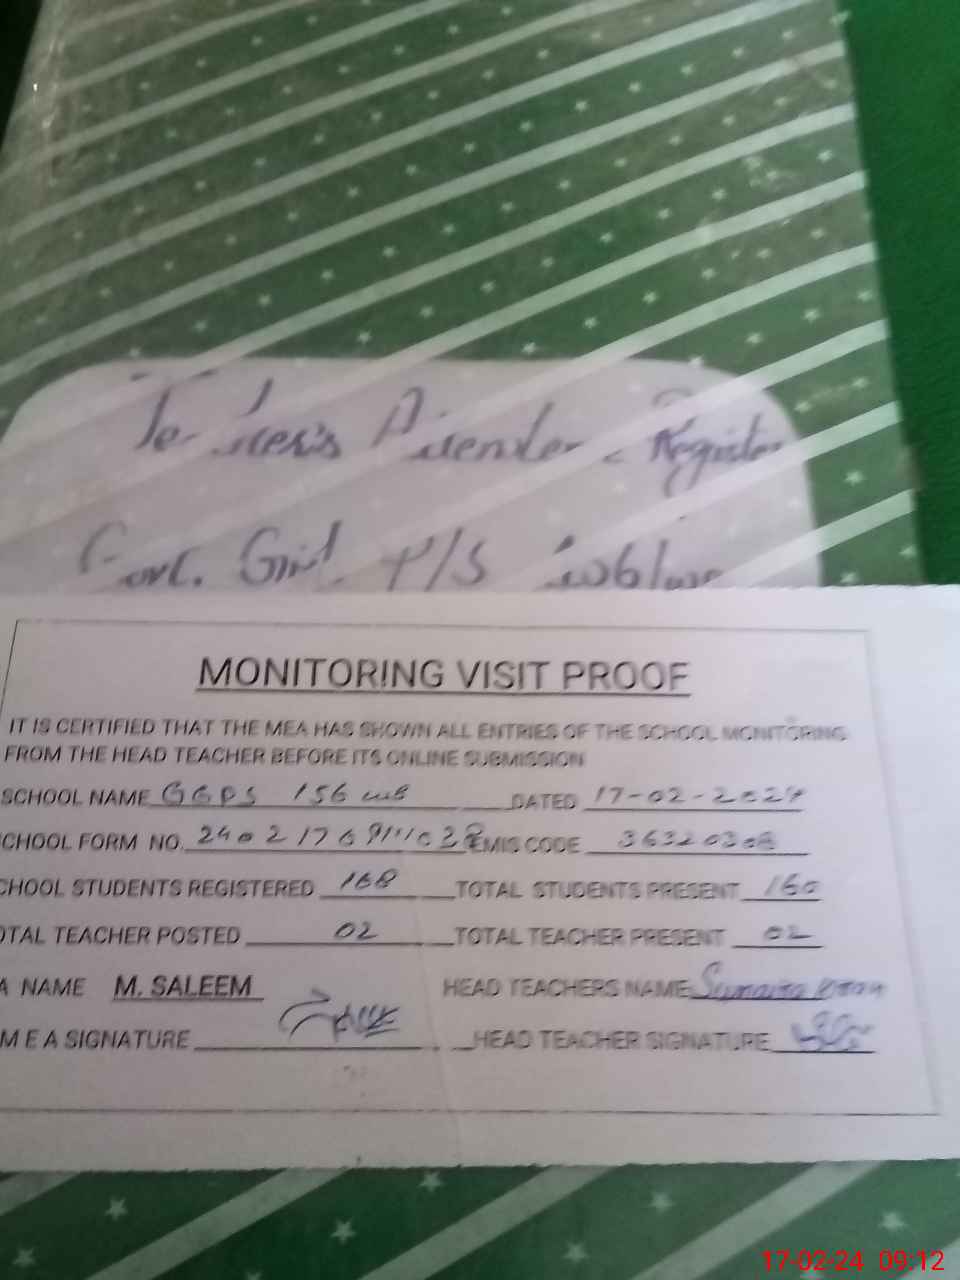 Register
Govt. Girl P/S
MONITORING VISIT PROOF
IT IS CERTIFIED THAT THE MEA HAS SHOWN ALL ENTRIES OF THE SCHOOL MONITORING
FROM THE HEAD TEACHER BEFORE ITS ONLINE SUBMISSION
SCHOOL NAME GGPS 156 WB DATED 17-02-2024
CHOOL FORM NO. EMIS CODE
CHOOL STUDENTS REGISTERED 168 TOTAL STUDENTS PRESENT 160
OTAL TEACHER POSTED 02 TOTAL TEACHER PRESENT 02
A NAME M. SALEEM HEAD TEACHERS NAME Sumaira
M E A SIGNATURE HEAD TEACHER SIGNATURE
17-02-24 09:12